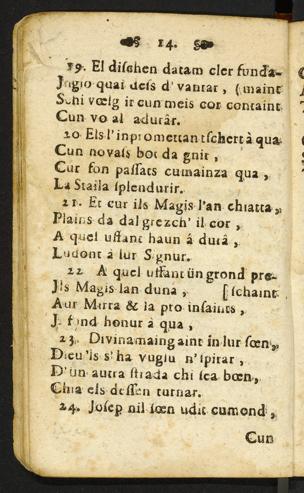 14.
19. El dischen datam cler funda-
Jngio quai dess d'vantar, (maint
Schi vœlg ir cun meis cor containt
Cun vo al adurâr.
20 Els l'inpromettan tschert à qua
Cun novass bot da gnir,
Cur fon passats cumainza qua,
La Staila splendurir.
21. Et cur ils Magis l'an chiatta,
Plains da dalgrezch' il cor,
A quel uffant haun á dutâ,
Ludont à lur Segnur.
22 A quel uffant ün grond pre-
Jls Magis lan duna, [schaint
Aur Mirra & la pro insaints,
Ji fond honur à qua,
23. Divinamaing aint in lur sœn,
Dieu'ls s'ha vugiu n'spirar,
D'ün autra strada chi sea bœn,
Chia els dessen turnar.
24. Josep nil sœn udit cumond,
Cun